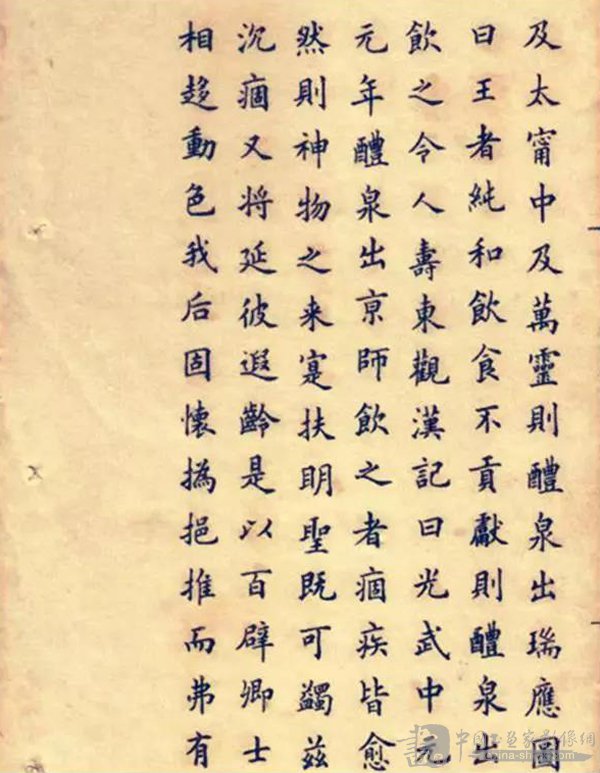 及太甯中及萬靈則醴泉出瑞應圖
曰王者純和飲食不貢獻則醴泉出
飲之令人壽東觀漢記曰光武中元
元年醴泉出亰師飲之者痼疾皆愈
然則神物之来寔扶明聖既可蠲兹
沉痼又将延彼遐齡是以百辟卿士
相趍動色我后固懷撝挹推而弗有